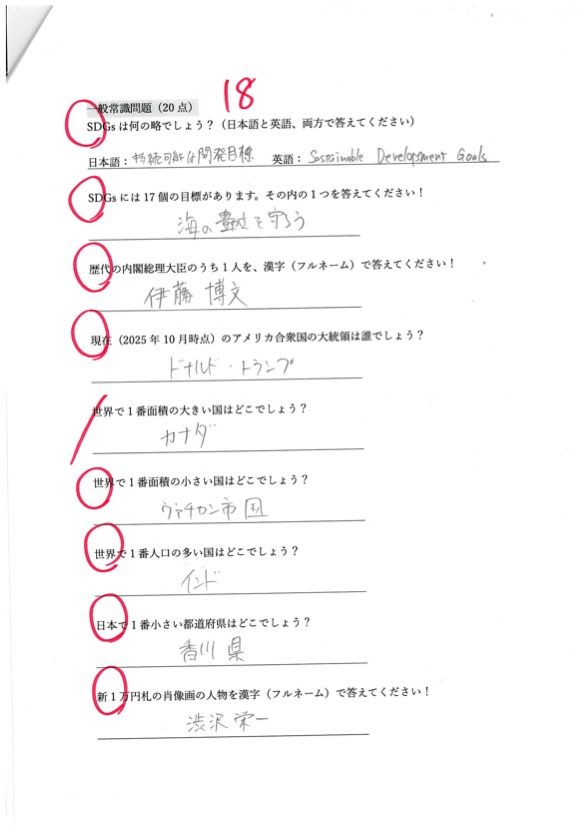 18
一般常識問題（20点）
SDGsは何の略でしょう？（日本語と英語、両方で答えてください）
日本語：持続可能な開発目標 英語：Sustainable Development Goals
SDGsには17個の目標があります。その内の1つを答えてください！
海の豊かさを守ろう
歴代の内閣総理大臣のうち1人を、漢字（フルネーム）で答えてください！
伊藤 博文
現在（2025年10月時点）のアメリカ合衆国の大統領は誰でしょう？
ドナルド・トランプ
世界で1番面積の大きい国はどこでしょう？
カナダ
世界で1番面積の小さい国はどこでしょう？
ヴァチカン市国
世界で1番人口の多い国はどこでしょう？
インド
日本で1番小さい都道府県はどこでしょう？
香川県
新1万円札の肖像画の人物を漢字（フルネーム）で答えてください！
渋沢栄一